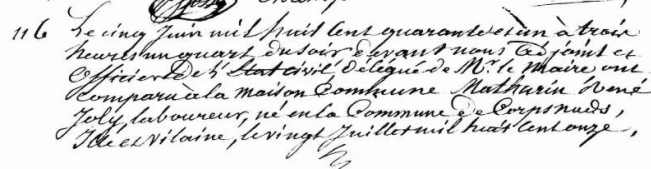 116 Le cinq Juin mil huit Cent quarante et un à trois
heures un quart du soir, devant nous adjoint et
Officier de l'état civil, délégué de Mr. le Maire ont
comparu à la maison Commune Mathurin René
Joly, laboureur, né en la Commune de Corpsnuds,
Ille et Vilaine, le vingt Juillet mil huit Cent onze,